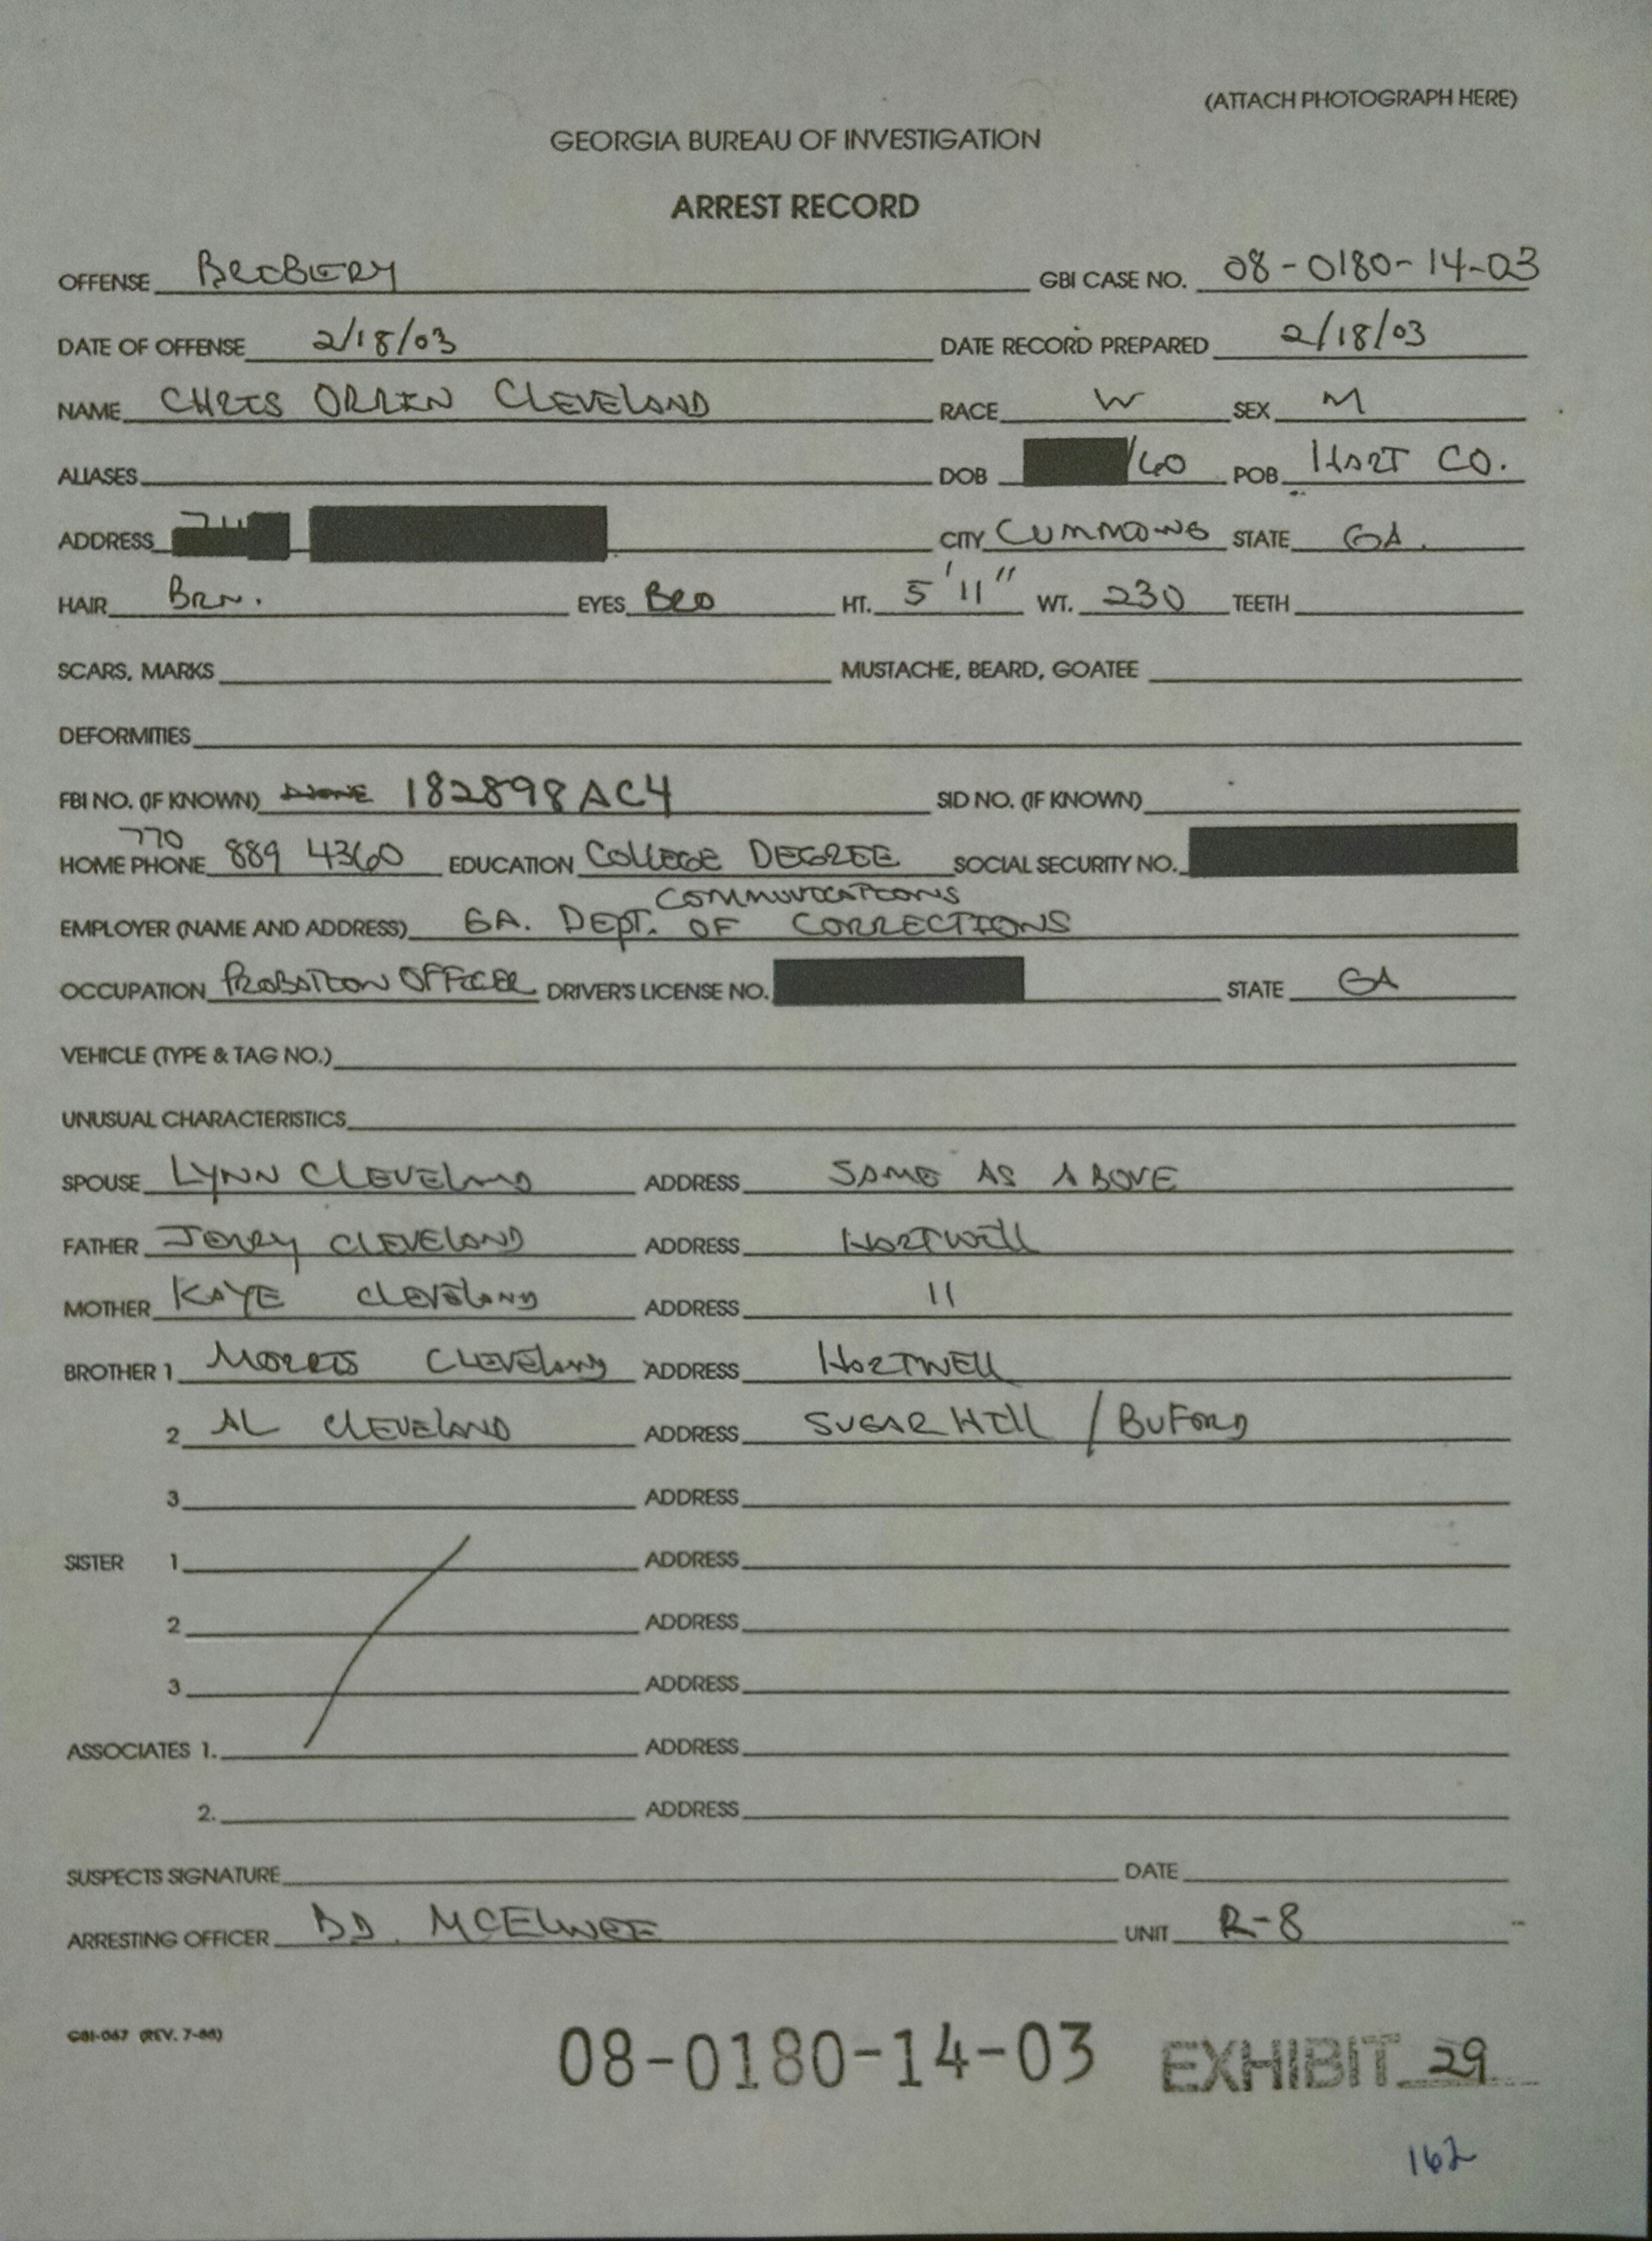 (ATTACH PHOTOGRAPH HERE)
GEORGIA BUREAU OF INVESTIGATION
ARREST RECORD
OFFENSE BRIBERY GBI CASE NO. 08-0180-14-03
DATE OF OFFENSE 2/18/03 DATE RECORD PREPARED 2/18/03
NAME CHRIS ORRIN CLEVELAND RACE W SEX M
ALIASES DOB /60 POB HART CO.
ADDRESS CITY CUMMING STATE GA.
HAIR BRN. EYES BRO HT. 5'11" WT. 230 TEETH
SCARS, MARKS MUSTACHE, BEARD, GOATEE
DEFORMITIES
FBI NO. (IF KNOWN) NONE 182898AC4 SID NO. (IF KNOWN)
770
HOME PHONE 889 4360 EDUCATION COLLEGE DEGREE SOCIAL SECURITY NO.
COMMUNICATIONS
EMPLOYER (NAME AND ADDRESS) GA. DEPT. OF CORRECTIONS
OCCUPATION PROBATION OFFICER DRIVER'S LICENSE NO. STATE GA
VEHICLE (TYPE & TAG NO.)
UNUSUAL CHARACTERISTICS
SPOUSE LYNN CLEVELAND ADDRESS SAME AS ABOVE
FATHER JERRY CLEVELAND ADDRESS HARTWELL
MOTHER KAYE CLEVELAND ADDRESS "
BROTHER 1 MORRIS CLEVELAND ADDRESS HARTWELL
2 AL CLEVELAND ADDRESS SUGAR HILL / BUFORD
3 ADDRESS
SISTER 1 ADDRESS
2 ADDRESS
3 ADDRESS
ASSOCIATES 1. ADDRESS
2. ADDRESS
SUSPECTS SIGNATURE DATE
ARRESTING OFFICER DD. MCELWEE UNIT R-8
GBI-067 (REV. 7-88)
08-0180-14-03 EXHIBIT 29
162